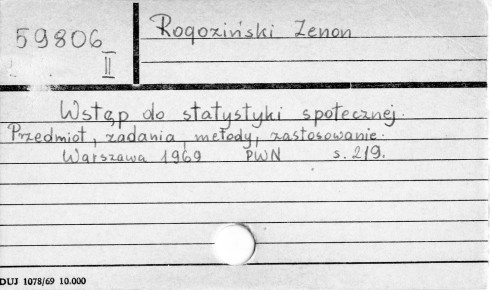 59806
II
Rogoziński Zenon
Wstęp do statystyki społecznej.
Przedmiot, zadania, metody, zastosowanie.
Warszawa 1969 PWN s. 219.
DUJ 1078/69 10.000